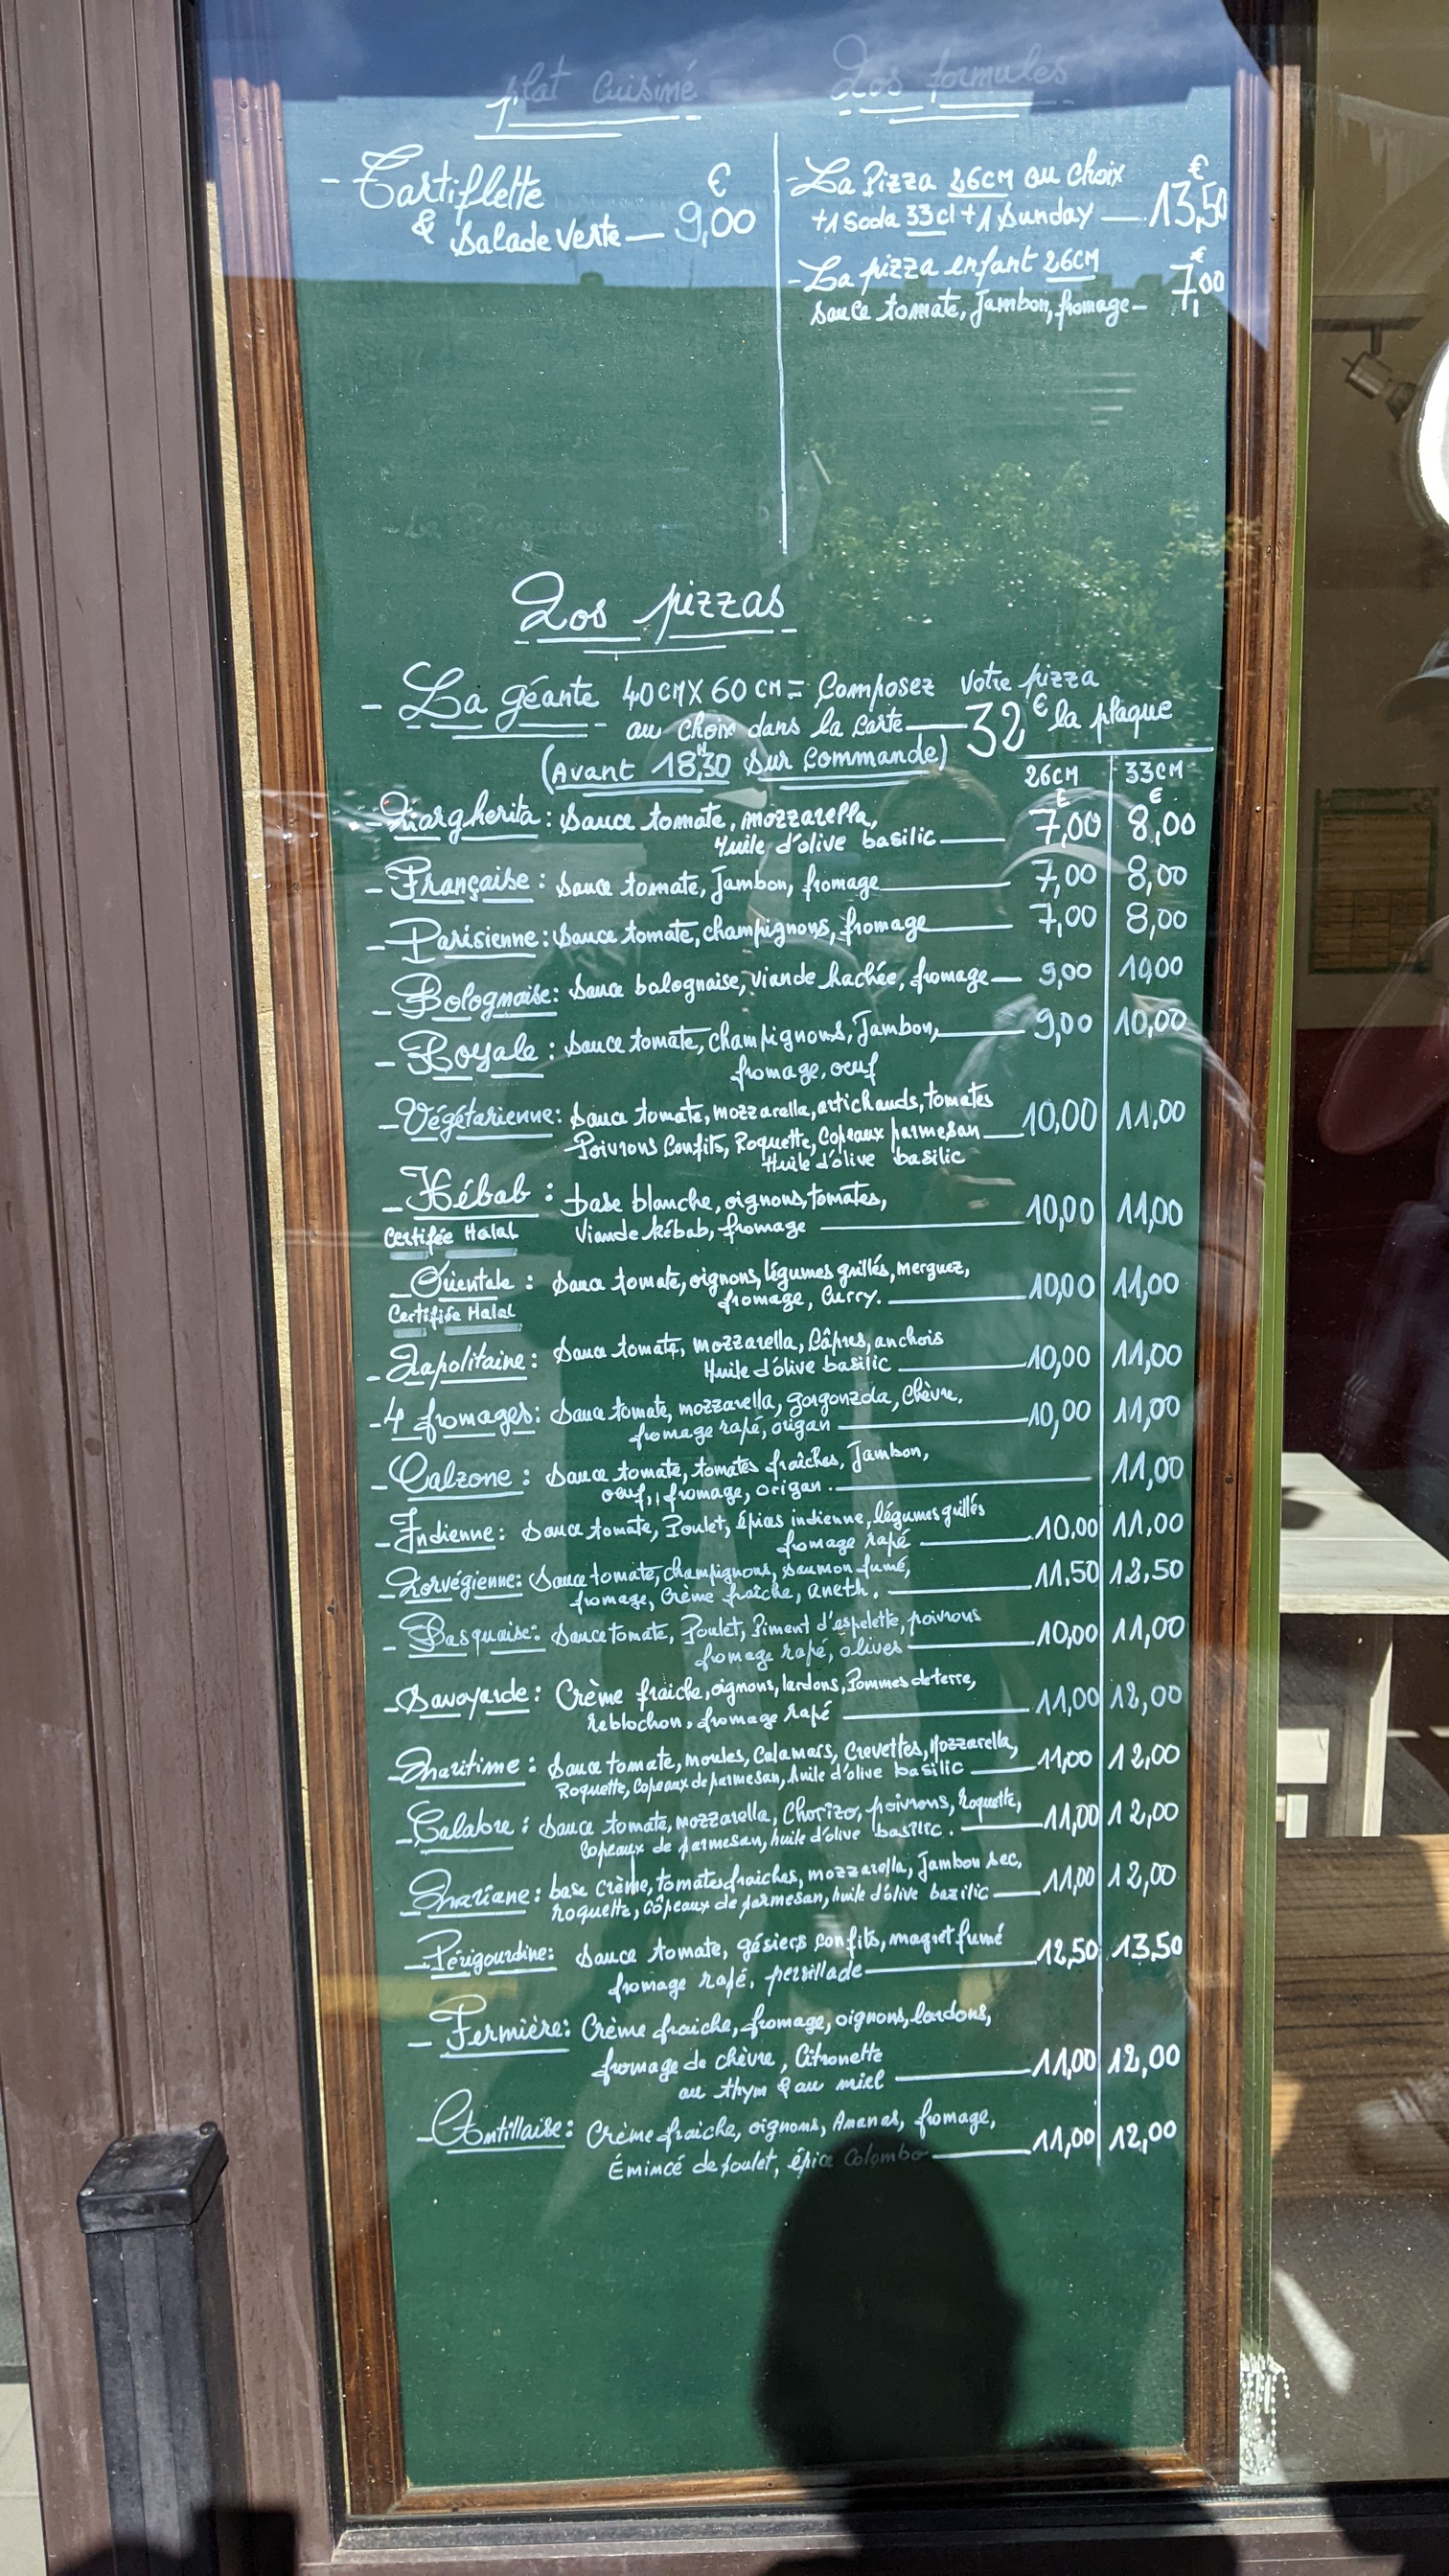 1 plat Cuisiné
Nos formules
- Tartiflette
& Salade verte — 9,00 €
- La Pizza 26CM au choix
+1 Soda 33cl +1 Sunday — 13,50 €
- La pizza enfant 26CM
Sauce tomate, Jambon, fromage — 7,00 €
Nos pizzas
- La géante 40CM X 60CM = Composez votre pizza
au choix dans la carte — 32 € la plaque
(Avant 18H30 sur commande)
26CM 33CM
€ €
- Margherita : Sauce tomate, mozzarella,
Huile d'olive basilic — 7,00 8,00
- Française : Sauce tomate, Jambon, fromage — 7,00 8,00
- Parisienne : Sauce tomate, champignons, fromage — 7,00 8,00
- Bolognaise : Sauce bolognaise, viande hachée, fromage — 9,00 10,00
- Royale : Sauce tomate, champignons, Jambon, — 9,00 10,00
fromage, oeuf
- Végétarienne : Sauce tomate, mozzarella, artichauds, tomates
Poivrons Confits, Roquette, Copeaux parmesan — 10,00 11,00
Huile d'olive basilic
- Kébab : base blanche, oignons, tomates,
Certifée Halal Viande kébab, fromage — 10,00 11,00
- Orientale : Sauce tomate, oignons, légumes grillés, merguez,
Certifiée Halal fromage, Curry. — 10,00 11,00
- Napolitaine : Sauce tomate, mozzarella, Câpres, anchois
Huile d'olive basilic — 10,00 11,00
- 4 fromages : Sauce tomate, mozzarella, gorgonzola, Chèvre,
fromage rapé, origan — 10,00 11,00
- Calzone : Sauce tomate, tomates fraîches, Jambon,
oeuf, fromage, origan. — 11,00
- Indienne : Sauce tomate, Poulet, épices indienne, légumes grillés
fromage rapé — 10,00 11,00
- Norvégienne : Sauce tomate, champignons, saumon fumé,
fromage, Crème fraîche, aneth. — 11,50 12,50
- Basquaise : Sauce tomate, Poulet, Piment d'espelette, poivrons
fromage rapé, olives — 10,00 11,00
- Savoyarde : Crème fraiche, oignons, lardons, Pommes de terre,
reblochon, fromage rapé — 11,00 12,00
- Maritime : Sauce tomate, moules, Calamars, Crevettes, Mozzarella,
Roquette, Copeaux de parmesan, huile d'olive basilic — 11,00 12,00
- Calabre : Sauce tomate, mozzarella, Chorizo, poivrons, roquette,
Copeaux de parmesan, huile d'olive basilic. — 11,00 12,00
- Mariane : base crème, tomates fraiches, mozzarella, Jambon sec,
roquette, côpeaux de parmesan, huile d'olive bazilic — 11,00 12,00
- Périgourdine : Sauce tomate, gésiers confits, magret fumé
fromage rapé, persillade — 12,50 13,50
- Fermière : Crème fraiche, fromage, oignons, lardons,
fromage de chèvre, Citronette
au thym & au miel — 11,00 12,00
- Antillaise : Crème fraiche, oignons, Ananas, fromage,
Émincé de poulet, épice Colombo — 11,00 12,00